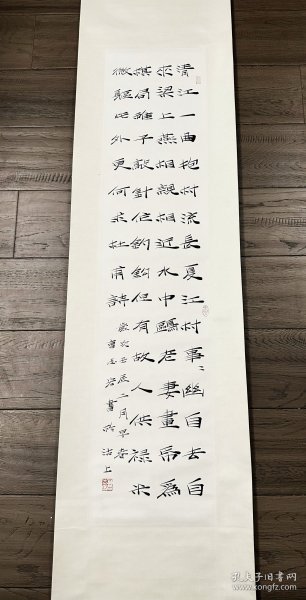 清江一曲抱村流長夏江村事〻幽自去自
來梁上燕相親相近水中鷗老妻畫帋為
棋局稚子敲針作釣鉤但有故人供禄米
微軀此外更何求杜甫詩
歲次壬辰二月早春
書於沽上
孔夫子旧书网